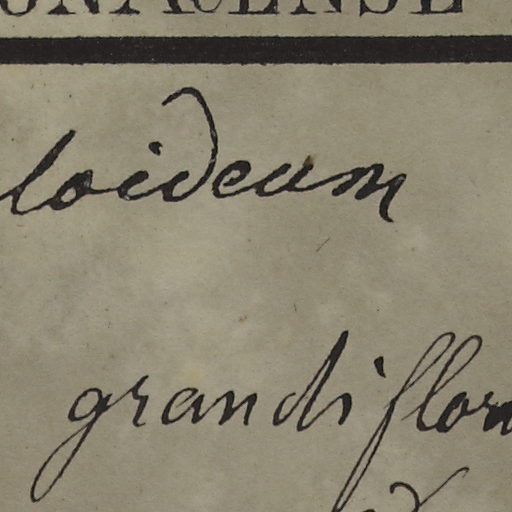 ONACENSE
loideum
grandiflor